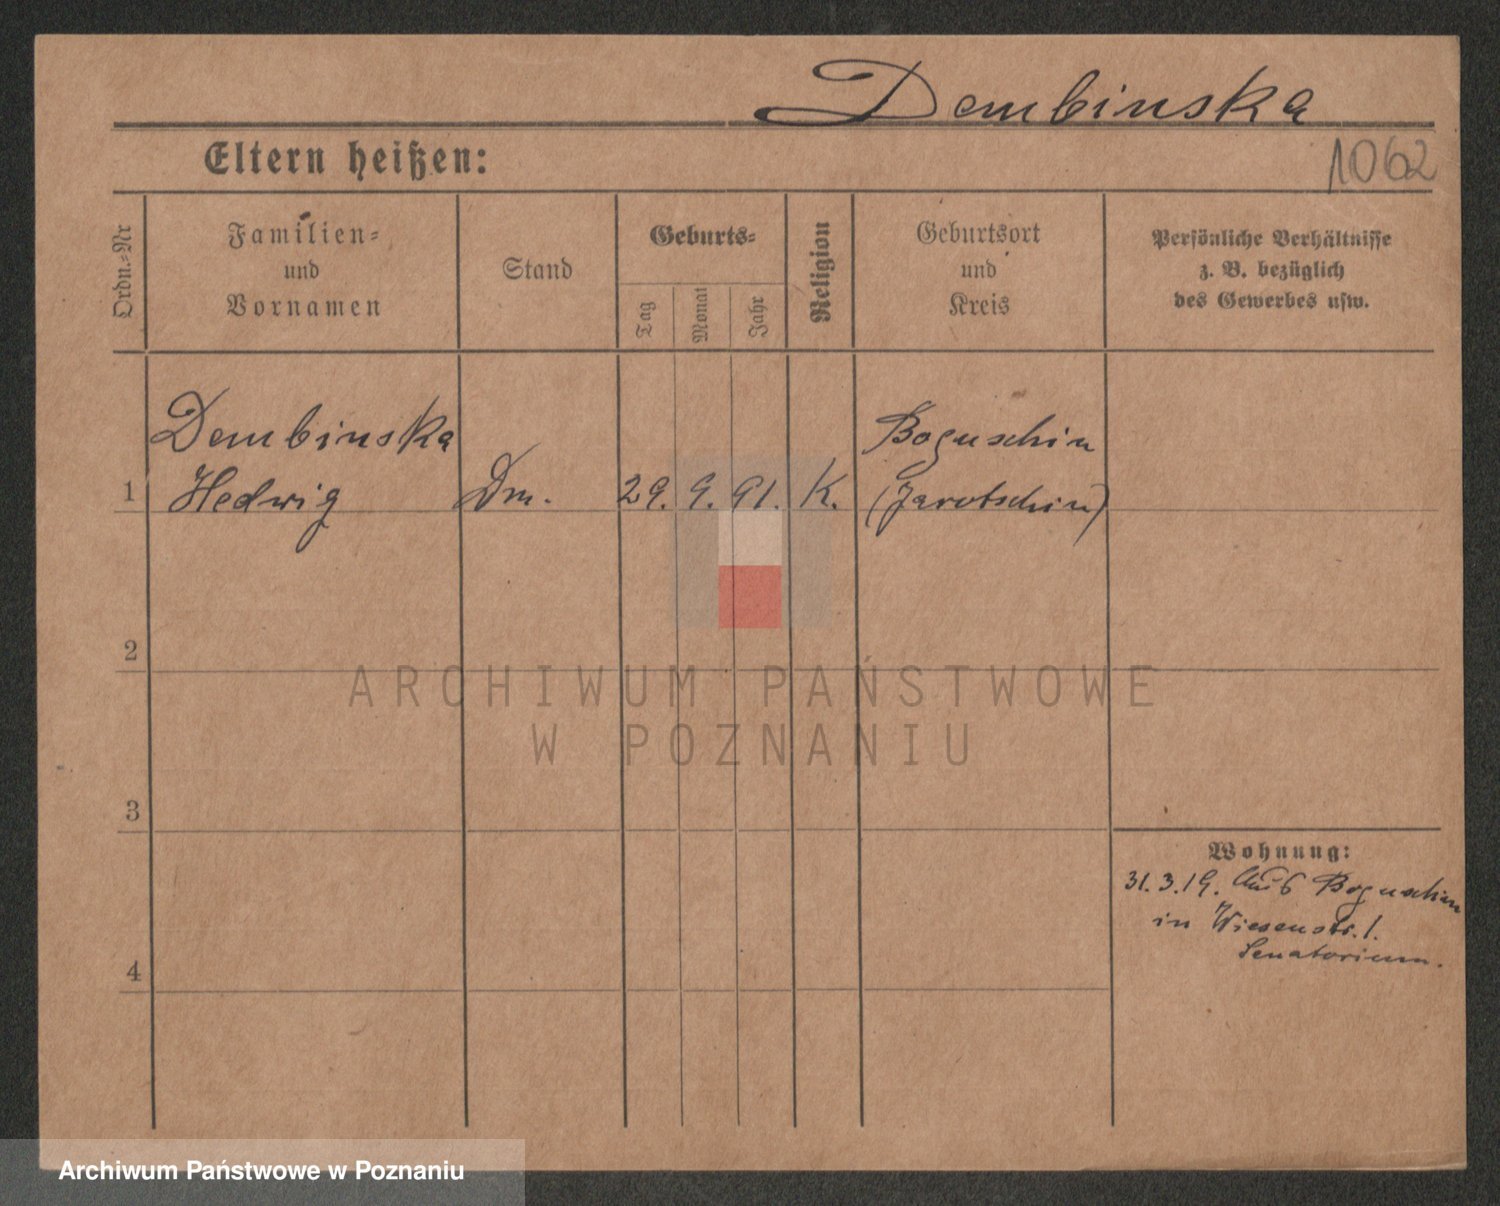 Dembinska
Eltern heißen:
1062
Ordn.-Nr
Familien-
und
Vornamen
Stand
Geburts-
Tag
Monat
Jahr
Religion
Geburtsort
und
Kreis
Persönliche Verhältnisse
z. B. bezüglich
des Gewerbes usw.
Dembinska
Hedwig
1
Dm.
29. 9. 91.
K.
Boguschin
(Jarotschin)
2
ARCHIWUM PAŃSTWOWE
W POZNANIU
3
Wohnung:
31.3.19. Aus Boguschin
in Wiesenstr. 1.
Senatorium.
4
Archiwum Państwowe w Poznaniu